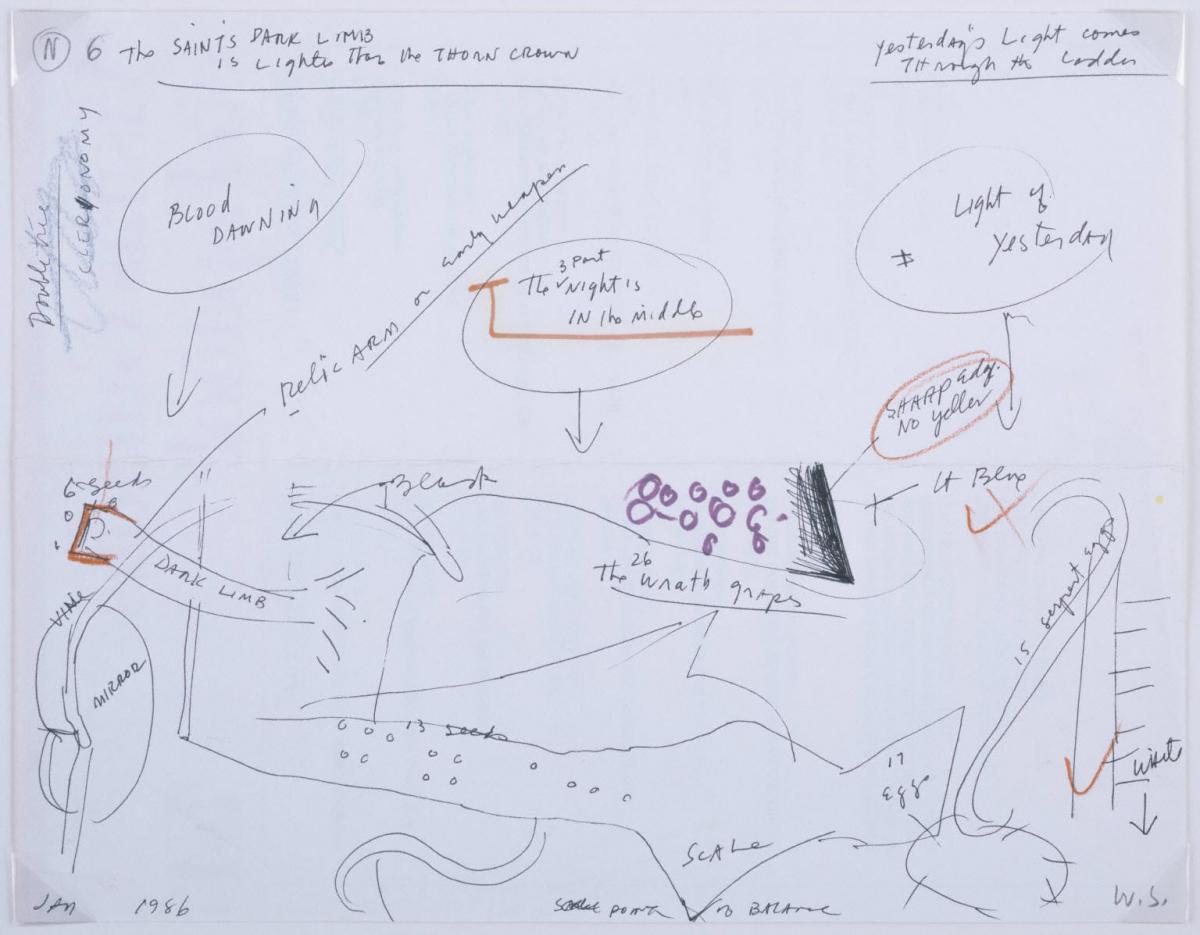 N 6 The SAINTS DARK LIMB
is Lighter Than the THORN CROWN
Yesterday's Light comes
THrough the Ladder
BLOOD
DAWNING
Relic ARM or early weapon
The 3 Part Night is
IN the middle
Light of
Yesterday
SHARP edge
NO yeller
6 Seeds
Black
Lt Blue
DARK LIMB
The 26 Wrath grapes
VINE
MIRROR
15 serpent eggs
13 seeds
17
eggs
White
SCALE
JAN 1986
POINT TO BALANCE
W.S.